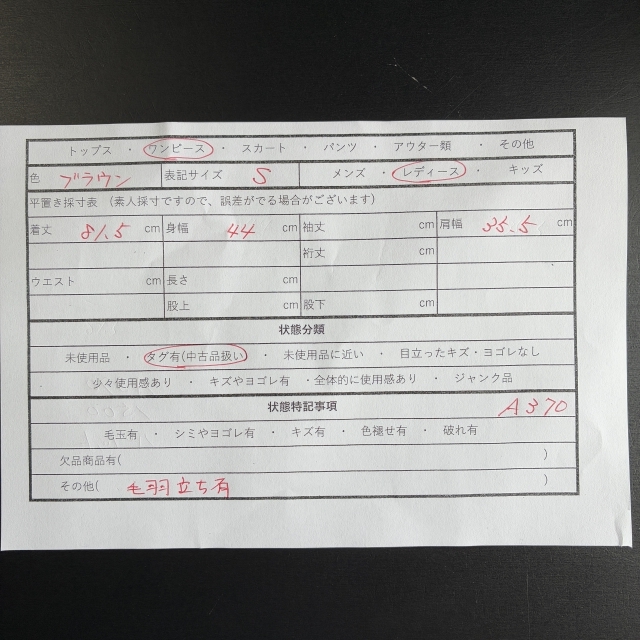 トップス ・ ワンピース ・ スカート ・ パンツ ・ アウター類 ・ その他
色 ブラウン 表記サイズ S メンズ ・ レディース ・ キッズ
平置き採寸表 (素人採寸ですので、誤差がでる場合がございます)
着丈 81.5 cm 身幅 44 cm 袖丈 cm 肩幅 35.5 cm
裄丈 cm
ウエスト cm 長さ cm
股上 cm 股下 cm
状態分類
未使用品 ・ タグ有(中古品扱い) ・ 未使用品に近い ・ 目立ったキズ・ヨゴレなし
少々使用感あり ・ キズやヨゴレ有 ・全体的に使用感あり ・ ジャンク品
状態特記事項 A370
毛玉有 ・ シミやヨゴレ有 ・ キズ有 ・ 色褪せ有 ・ 破れ有
欠品商品有( )
その他( 毛羽立ち有 )